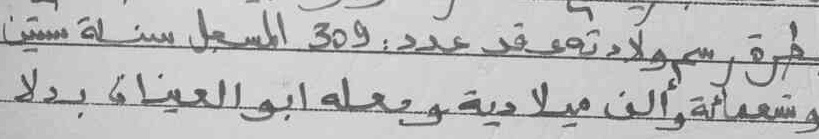 طرة رسم ولادته عقد عدد: 309 المسجل سنة ستين
وتسعمائة وألف ميلادية وجعله ابو العينان بدلا